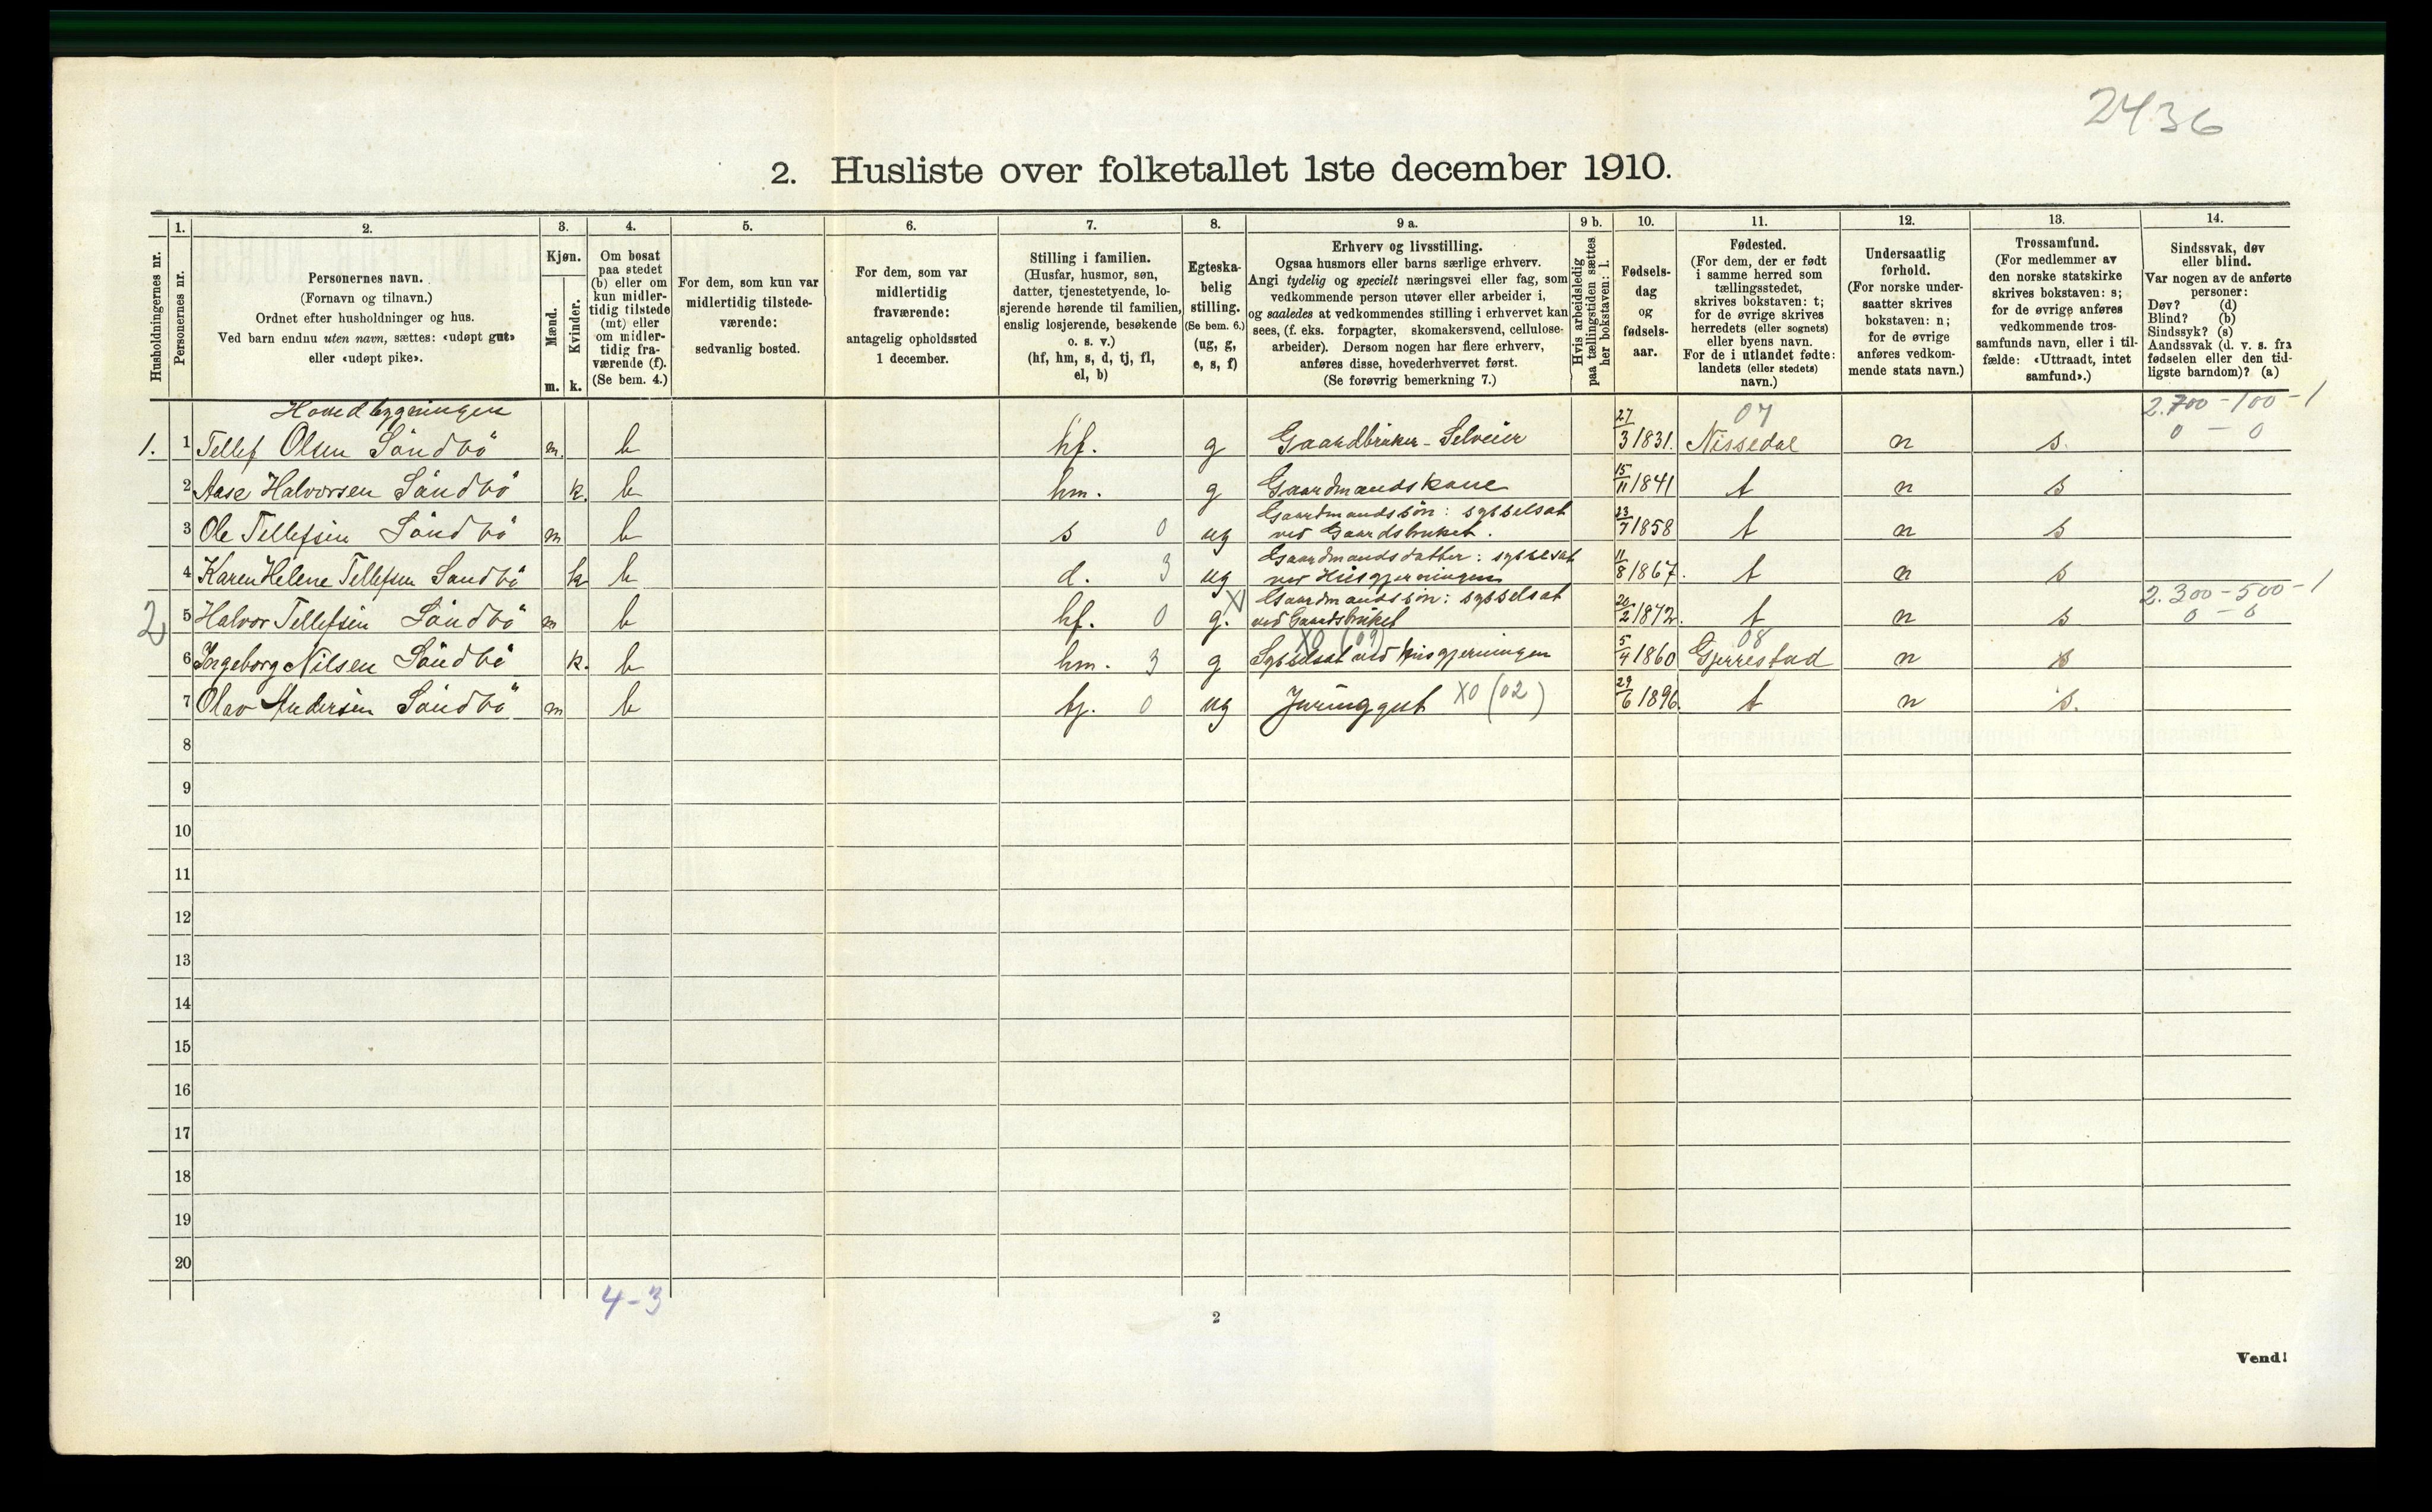 2436
2. Husliste over folketallet 1ste december 1910.
Husholdningernes nr.
1.
Personernes nr.
2.
Personernes navn.
(Fornavn og tilnavn.)
Ordnet efter husholdninger og hus.
Ved barn endnu uten navn, sættes: «udøpt gut»
eller «udøpt pike».
3.
Kjøn.
Mænd.
Kvinder.
m. k.
4.
Om bosat
paa stedet
(b) eller om
kun midler-
tidig tilstede
(mt) eller
om midler-
tidig fra-
værende (f).
(Se bem. 4.)
5.
For dem, som kun var
midlertidig tilstede-
værende:
sedvanlig bosted.
6.
For dem, som var
midlertidig
fraværende:
antagelig opholdssted
1 december.
7.
Stilling i familien.
(Husfar, husmor, søn,
datter, tjenestetyende, lo-
sjerende hørende til familien,
enslig losjerende, besøkende
o. s. v.)
(hf, hm, s, d, tj, fl,
el, b)
8.
Egteska-
belig
stilling.
(Se bem. 6.)
(ug, g,
e, s, f)
9 a.
Erhverv og livsstilling.
Ogsaa husmors eller barns særlige erhverv.
Angi tydelig og specielt næringsvei eller fag, som
vedkommende person utøver eller arbeider i,
og saaledes at vedkommendes stilling i erhvervet kan
sees, (f. eks. forpagter, skomakersvend, cellulose-
arbeider). Dersom nogen har flere erhverv,
anføres disse, hovederhvervet først.
(Se forøvrig bemerkning 7.)
9 b.
Hvis arbeidsledig
paa tællingstiden sættes
her bokstaven: l.
10.
Fødsels-
dag
og
fødsels-
aar.
11.
Fødested.
(For dem, der er født
i samme herred som
tællingsstedet,
skrives bokstaven: t;
for de øvrige skrives
herredets (eller sognets)
eller byens navn.
For de i utlandet fødte:
landets (eller stedets)
navn.)
12.
Undersaatlig
forhold.
(For norske under-
saatter skrives
bokstaven: n;
for de øvrige
anføres vedkom-
mende stats navn.)
13.
Trossamfund.
(For medlemmer av
den norske statskirke
skrives bokstaven: s;
for de øvrige anføres
vedkommende tros-
samfunds navn, eller i til-
fælde: «Uttraadt, intet
samfund».)
14.
Sindssvak, døv
eller blind.
Var nogen av de anførte
personer:
Døv? (d)
Blind? (b)
Sindssyk? (s)
Aandssvak (d. v. s. fra
fødselen eller den tid-
ligste barndom)? (a)
Hovedbygningen 07 2.700 - 100 - 1
1. 1 Tellef Olsen Sändbö m. b hf. g Gaardbruker - Selveier 27/3 1831. Nissedal n s. 0 - 0
2 Aase Halvorsen Sändbö k. b hm. g Gaardmandskone 15/11 1841 t n s
3 Ole Tellefsen Sändbö m b s 0 ug Gaardmandssön: sysselsat ved Gaardsbruket. 23/7 1858 t n s
4 Karen Helene Tellefsen Sandbö k b d. 3 ug Gaardmandsdatter: sysselsat ved Husgjerningen 11/8 1867. t n s
2.300 - 500 - 1
2 5 Halvor Tellefsen Sändbö m b hf. 0 g. X Gaardmandssön: sysselsat ved Gaardsbruket 20/2 1872. t n s 0 - 0
X0 (09) 08
6 Ingeborg Nilsen Sändbö k. b hm. 3 g Sysselsat ved husgjerningen 5/4 1860 Gjerrestad n s
7 Olav Andersen Sändbö m b tj. 0 ug Jüringgut X0 (02) 29/6 1896. t n s.
8
9
10
11
12
13
14
15
16
17
18
19
20
4-3
2
Vend!